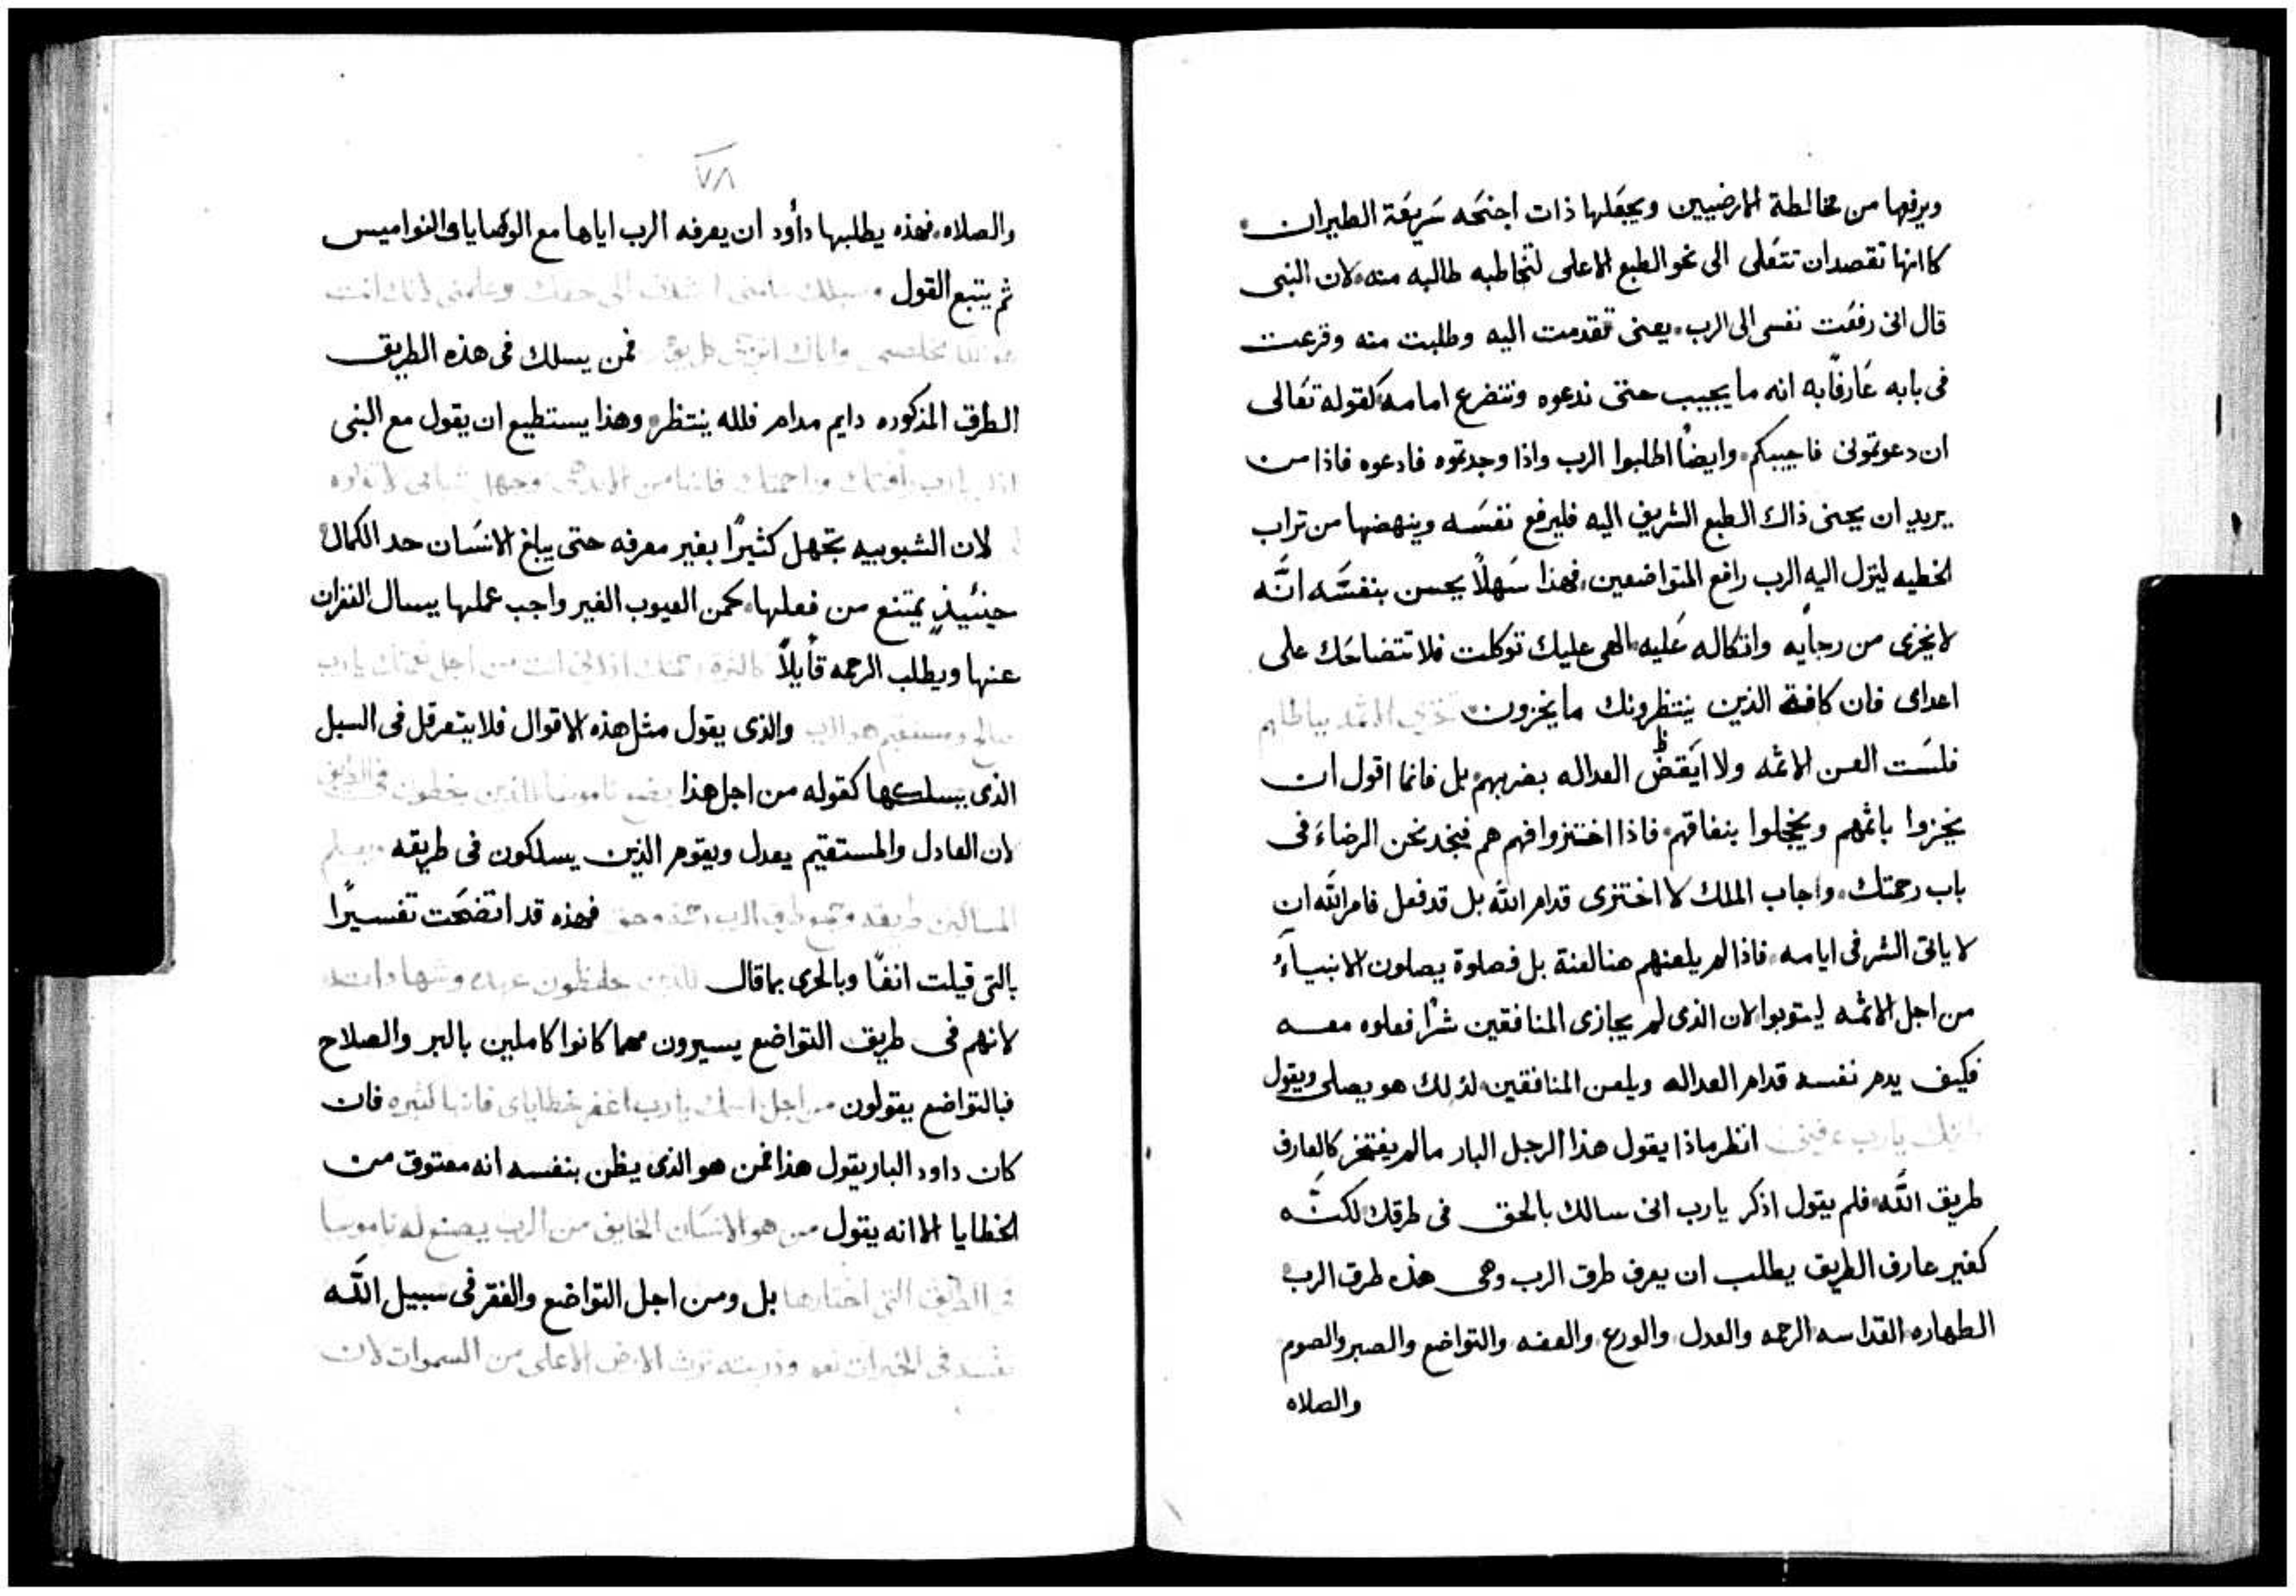 ويرفعها من مخالطة الارضيين ويجعلها ذات اجنحه سريعة الطيران
كاانها تقصد ان تتعلى الى نحو الطبع الاعلى لتخاطبه طالبه منه لان النبى
قال انى رفعت نفسى الى الرب يعنى تقدمت اليه وطلبت منه وقرعت
فى بابه عارفًا به انه ما يجيب حتى ندعوه ونتضرع امامه كقوله تعالى
ان دعوتمونى فاجيبكم وايضًا اطلبوا الرب واذا وجدتموه فادعوه فاذا من
يريد ان يحنى ذاك الطبع الشريف اليه فليرفع نفسه وينهضها من تراب
الخطيه لينزل اليه الرب رافع المتواضعين فهذا سهلًا يحسن بنفسه انه
لا يخزى من رجايه واتكاله عليه الهى عليك توكلت فلا تتضاحك على
اعداى فان كافة الذين ينتظرونك ما يخزون تخزى الاثمه بباطلهم
فلست العن الاثمه ولا ايقض العداله بضربهم بل فانما اقول ان
يخزوا باثمهم ويخجلوا بنفاقهم فاذا اختزوا فهم هم فنجد نحن الرضاء فى
باب رحمتك واجاب الملك لا اختزى قدام الله بل قد فعل فامر الله ان
لا ياتى الشر فى ايامه فاذا لم يلعنهم هنا لعنة بل فصلوة يصلون الانبياء
من اجل الاثمه ليتوبوا لان الذى لم يجازى المنافقين شرًا فعلوه معه
فكيف يدم نفسه قدام العداله ويلعن المنافقين لذلك هو يصلى ويقول
يارب عرفنى انظر ماذا يقول هذا الرجل البار ما لم يفتخر كالعارف
طريق الله فلم يقول اذكر يارب انى سالك بالحق فى طرقك لكنه
كغير عارف الطريق يطلب ان يعرف طرق الرب وهى هذه طرق الرب
الطهاره القداسه الرحمه والعدل والورع والعفه والتواضع والصبر والصوم
والصلاه
٧٨
والصلاه فهذه يطلبها داود ان يعرفه الرب اياها مع الوصايا والنواميس
ثم يتبع القول الى حقك وعلمنى لانك انت
مخلصى واياك فمن يسلك فى هذه الطريق
الطرق المذكوره دايم مدام فلله ينتظر وهذا يستطيع ان يقول مع النبى
اذكر يارب رأفتك ومراحمك فانها من الابد وجهل شبابى لا تذكره
لان الشبوبيه تجهل كثيرًا بغير معرفه حتى يبلغ الانسان حد الكمال
حينيذٍ يمتنع من فعلها كمن العيوب الغير واجب عملها يسال الغفران
عنها ويطلب الرحمه قايلًا رحمتك اذكرنى انت من اجل يارب
صالح ومستقيم هو الرب والذى يقول مثل هذه الاقوال فلا يتعرقل فى السبل
الذى يسلكها كقوله من اجل هذا يضع ناموسا للذين يخطون فى الطريق
لان العادل والمستقيم يعدل ويقوم الذين يسلكون فى طريقه
طريقه طرق الرب رحمة وحق فهذه قد اتضحت تفسيرًا
بالتى قيلت انفًا وبالحرى بما قال للذين حافظون عهده وشهاداته
لانهم فى طريق التواضع يسيرون مهما كانوا كاملين بالبر والصلاح
فبالتواضع يقولون من اجل اسمك يارب اغفر خطاياى فانها كثيره فان
كان داود البار يقول هذا فمن هو الذى يظن بنفسه انه معتوق من
الخطايا الا انه يقول من هو الانسان الخايف من الرب يصنع له ناموسا
فى الطريق التى اختارها بل ومن اجل التواضع والفقر فى سبيل الله
نفسه فى الخيرات وذريته ترث الارض الاعلى من السموات لان